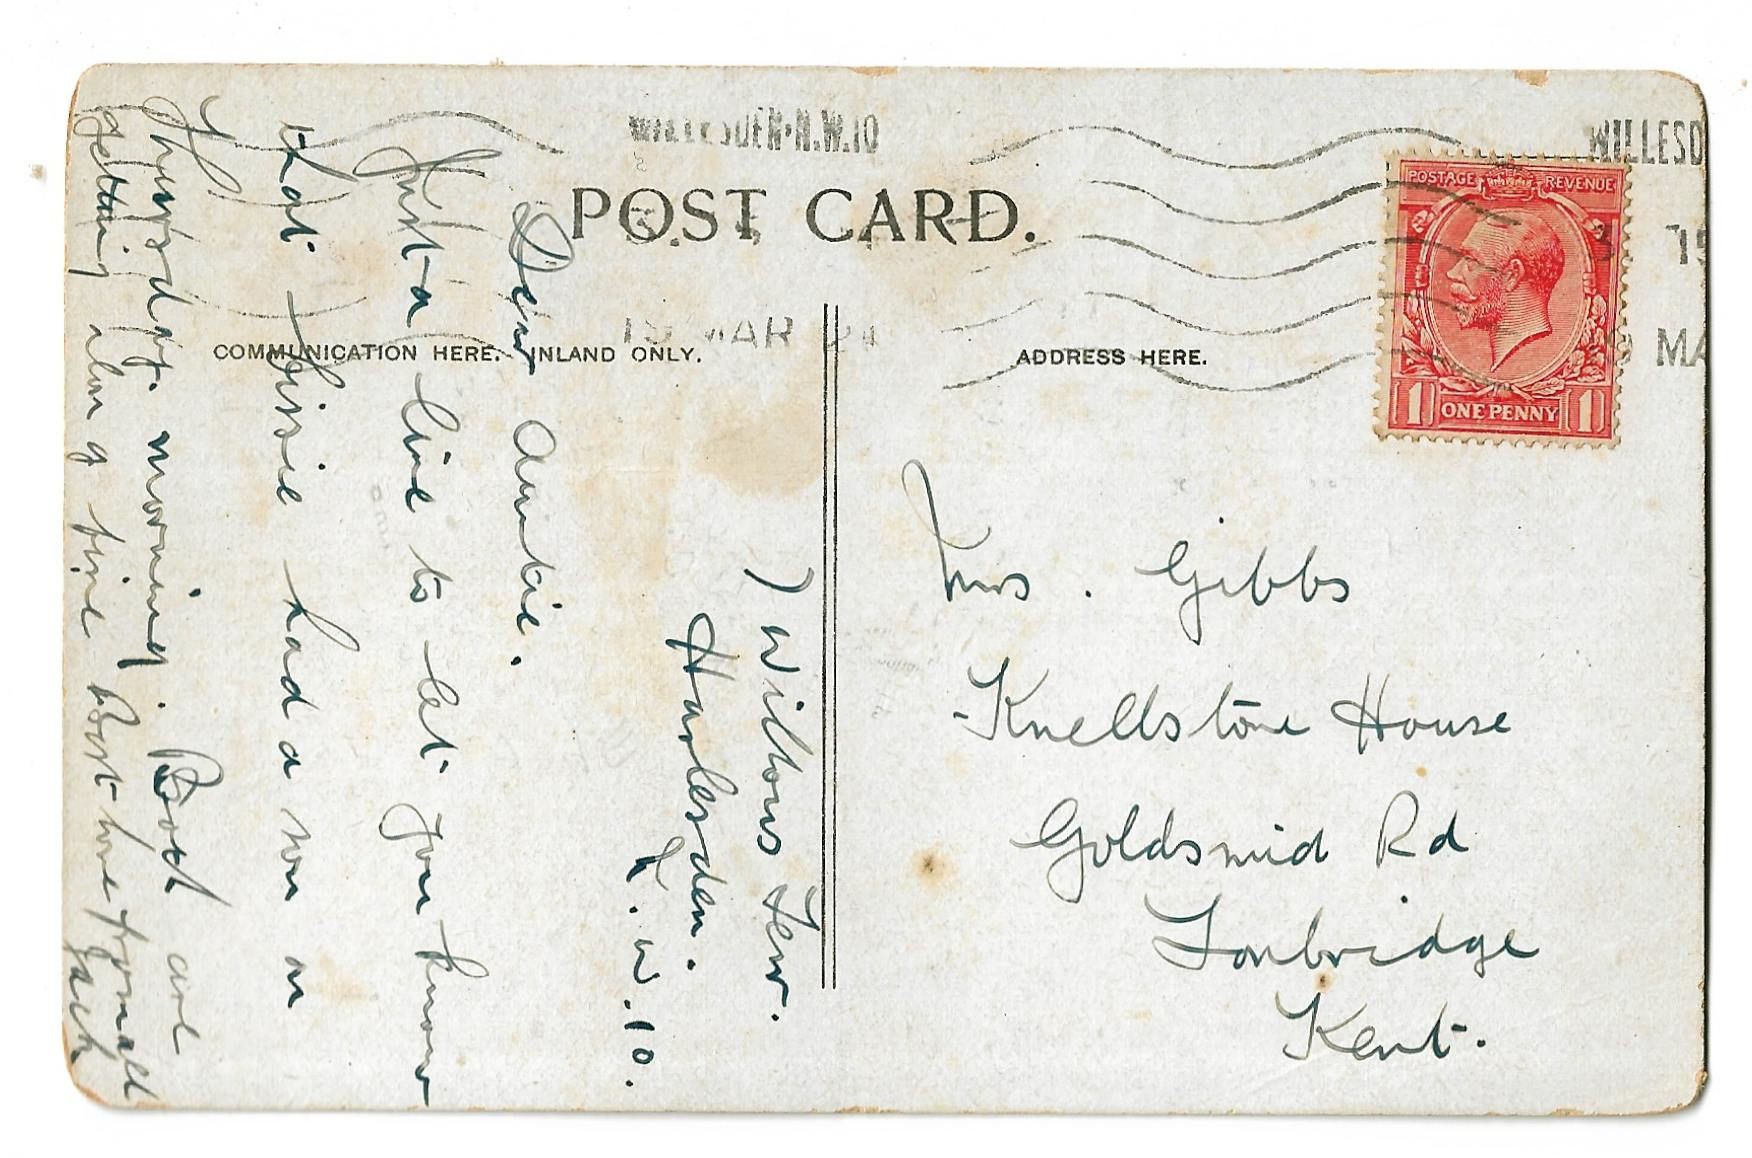 WILLESDEN·N.W.10
WILLESD
POST CARD.
15 MAR
15
MA
COMMUNICATION HERE. INLAND ONLY.
ADDRESS HERE.
POSTAGE REVENUE
1 ONE PENNY 1
7 Willows Terr.
Harlesden.
N.W.10.
Dear Auntie.
Just a line to let you know
that Lissie had a son on
Thursday. morning. Both are
getting along fine Best love from all
Jack
Mrs. Gibbs
Knellstone House
Goldsmid Rd
Tonbridge
Kent.